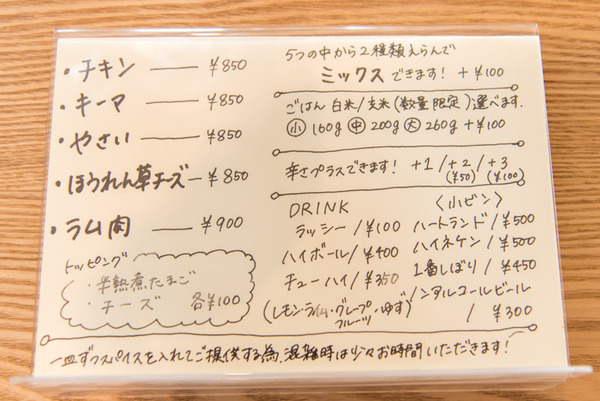 ・チキン ―― ¥850
・キーマ ―― ¥850
・やさい ―― ¥850
・ほうれん草チーズ ― ¥850
・ラム肉 ―― ¥900
トッピング
・半熟煮たまご
・チーズ 各¥100
5つの中から2種類えらんで
ミックスできます! +¥100
ごはん 白米/玄米(数量限定)選べます.
小 160g 中 200g 大 260g +¥100
辛さプラスできます! +1/+2/+3
(¥50) (¥100)
DRINK
ラッシー/¥100
ハイボール/¥400
チューハイ/¥350
(レモン・ライム・グレープフルーツ・ゆず)
〈小ビン〉
ハートランド/¥500
ハイネケン/¥500
1番しぼり/¥450
ノンアルコールビール
/¥300
一皿ずつスパイスを入れてご提供する為、混雑時は少々お時間いただきます!